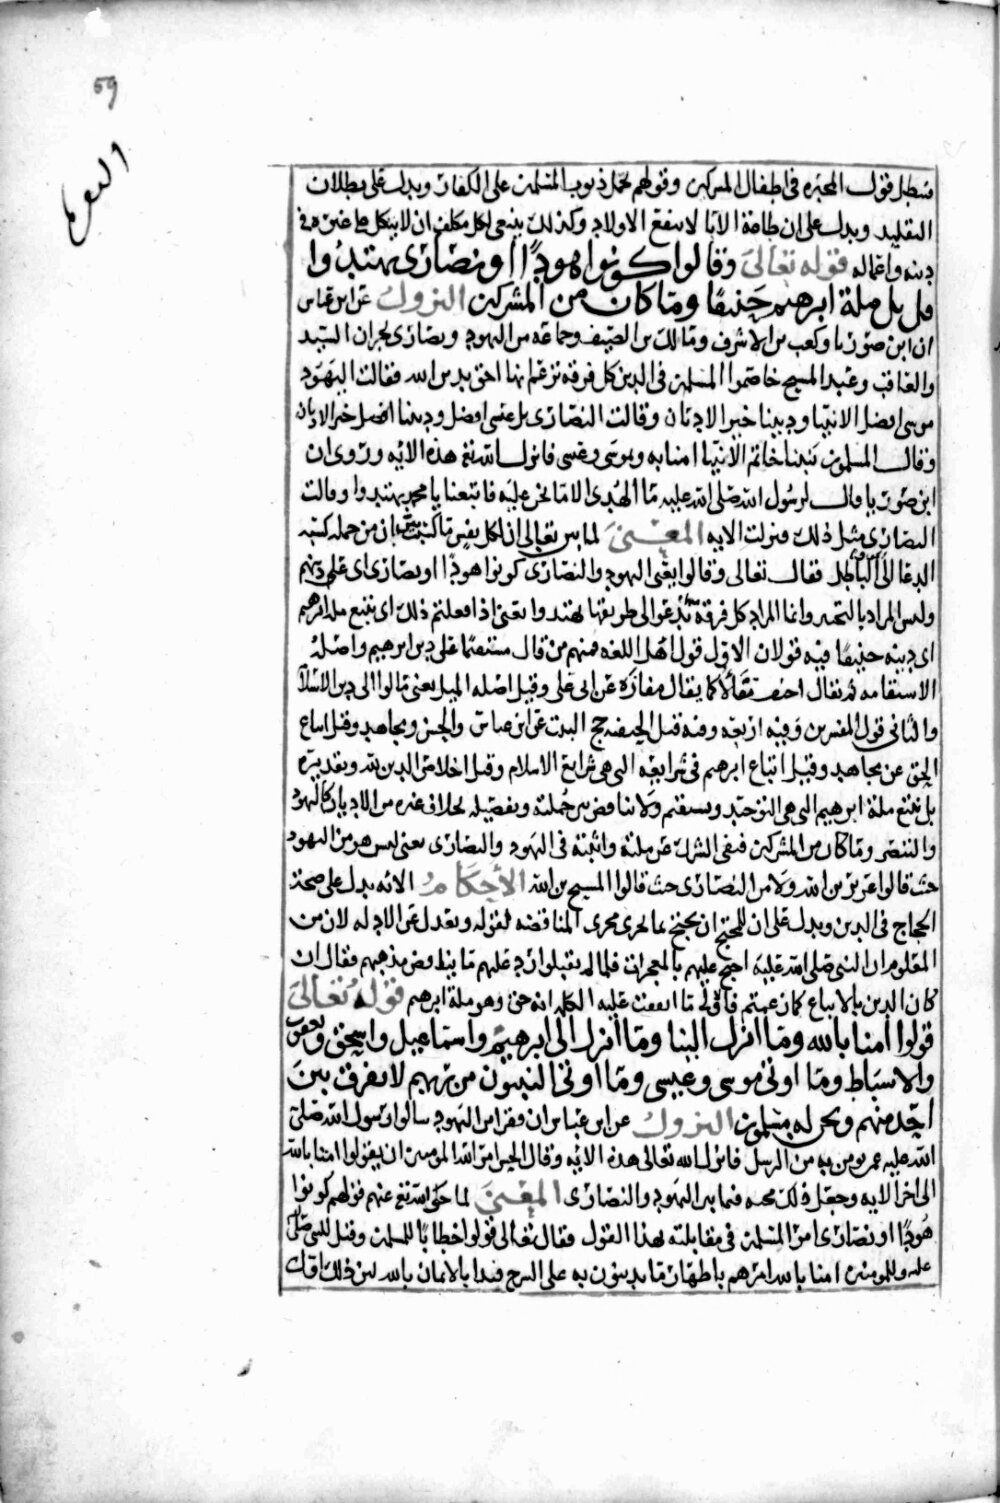 59
فيبطل قول المجبرة في اطفال المشركين وقولهم بحمل ذنوب المسلمين على الكفار ويدل على بطلان
التقليد ويدل على ان طاعة الابا لا تنفع الاولاد وكذلك ينبغي لكل مكلف ان لا يتكل على غيره في
دينه واعماله قوله تعالى وقالوا كونوا هودًا او نصارى تهتدوا
قل بل ملة ابرهيم حنيفا وما كان من المشركين النزول عن ابن عباس
ان ابن صوريا وكعب بن الاشرف ومالك بن الصيف وجماعه من اليهود ونصارى نجران السيد
والعاقب وعبد المسيح خاصموا المسلمين في الدين كل فرقه تزعم انها احق بدين الله فقالت اليهود
موسى افضل الانبيا وديننا خير الاديان وقالت النصارى بل عيسى افضل وديننا افضل خير الاديان
وقال المسلمون نبينا خاتم الانبيا امنا به وبموسى وعيسى فانزل الله تع هذه الايه وروى ان
ابن صوريا قال لرسول الله صلى الله عليه ما الهدى الا ما نحن عليه فاتبعنا يا محمد تهتدوا وقالت
النصارى مثل ذلك فنزلت الايه المعنى لما بين تعالى ان لكل نفس ما كسبت بين ان من جمله كسبه
الدعا الى الباطل فقال تعالى وقالوا يعنى اليهود والنصارى كونوا هودًا او نصارى اى على دينهم
وليس المراد به التخيير وانما المراد كل فرقه تدعو الى طريقتها تهتدوا يعنى اذا فعلتم ذلك اى نتبع مله ابرهيم
اى دينه حنيفا فيه قولان الاول قول اهل اللغه فمنهم من قال مستقيما على دين ابرهيم واصله
الاستقامه ثم يقال احنف تفالا كما يقال مفازه عن ابى على وقيل اصله الميل يعنى مالوا الى دين الاسلام
والثانى قول المفسرين وفيه اربعه وفيه قيل الحنيفيه حج البيت عن ابن عباس والحسن ومجاهد وقيل اتباع
الحق عن مجاهد وقيل اتباع ابرهيم في شرائعه التى هى شرائع الاسلام وقيل اخلاص الدين لله وتقديره
بل نتبع ملة ابرهيم التى هى التوحيد وتستقيم ولا تناقض بين جملته وتفصيله بخلاف غيره من الاديان كاليهود
والتنصر وما كان من المشركين فنفى الشرك عن ملته واثبته في اليهود والنصارى يعنى ليس هو من اليهود
حيث قالوا عزير بن الله ولا من النصارى حيث قالوا المسيح بن الله الأحكام الايه يدل على صحة
الحجاج في الدين ويدل على ان للمحتج ان يحتج بما يجرى مجرى المناقضه لقوله ويعدل عن الادله لان من
المعلوم ان النبى صلى الله عليه احتج عليهم بالمعجزات فلما لم يقبلوا اورد عليهم ما يناقض مذهبهم فقال ان
كان الدين بالاتباع كما زعمتم فاولى ما اتفقت عليه الكلمه انه حق وهو ملة ابرهيم قوله تعالى
قولوا امنا بالله وما انزل الينا وما انزل الى ابرهيم واسماعيل واسحق ويعقوب
والاسباط وما اوتى موسى وعيسى وما اوتى النبيون من ربهم لا نفرق بين
احد منهم ونحن له مسلمون النزول عن ابن عباس ان نفرا من اليهود سالوا رسول الله صلى
الله عليه عمن يومن به من الرسل فانزل الله تعالى هذه الايه وقال الحسن امر الله المومنين ان يقولوا امنا بالله
الى اخر الايه وجعل ذلك محنه فيما بين اليهود والنصارى المعنى لما حكى الله تع عنهم قولهم كونوا
هودًا او نصارى امر المسلمين في مقابلته بهذا القول فقال تعالى قولوا خطابًا للمسلمين وقيل للنبى صلى
عليه وللمومنين امنا بالله امرهم باظهار ما يدينون به على الشرح فبدا بالايمان بالله لان ذلك اول